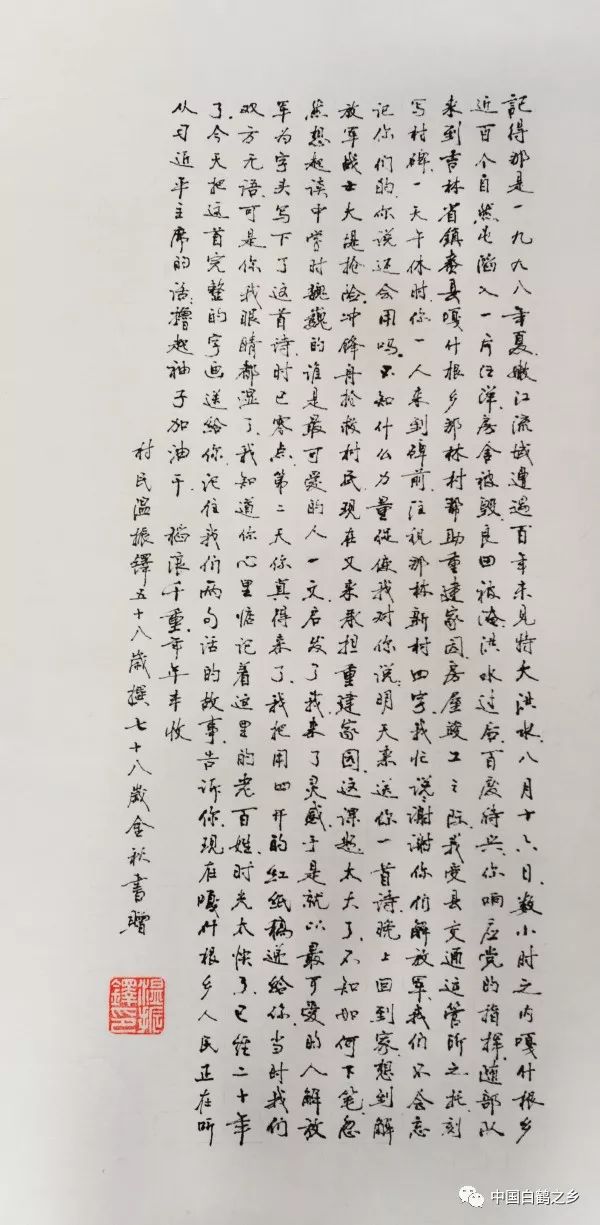 記得那是一九九八年夏嫩江流域遭遇百年未見特大洪水.八月十六日.数小时之内嘎什根乡
近百个自然屯陷入一片汪洋.房舍被毁良田被淹洪水过后百废待兴.你响应党的指挥.随部队
来到吉林省鎮赉县嘎什根乡那林村帮助重建家园.房屋竣工之际.我受县交通运管所之托.刻
写村碑.一天午休时你一人来到碑前注视那林新村四字.我忙说.谢谢你们解放军.我们不会忘
记你们的.你说还会用吗.不知什么力量促使我对你说明天来送你一首诗.晚上回到家想到解
放军战士大堤抢险.冲锋舟抢救村民现在又来承担重建家园.这课题太大了.不知如何下笔.忽
然想起读中学时魏巍的谁是最可爱的人一文启发了我来了灵感于是就以最可爱的人解放
军为字头写下了这首诗.时已零点.第二天你真得来了.我把用四开的紅纸稿递给你.当时我们
双方无语可是你我眼睛都湿了.我知道你心里惦记着这里的老百姓.时光太快了.已经二十年
了.今天把这首完整的字画送给你.记住我们两句话的故事.告诉你.现在嘎什根乡人民正在听
从习近平主席的话.撸起袖子加油干 稻浪千重年年丰收
村民温振鐸五十八歲撰七十八歲金秋書贈
温振鐸印
中国白鹤之乡